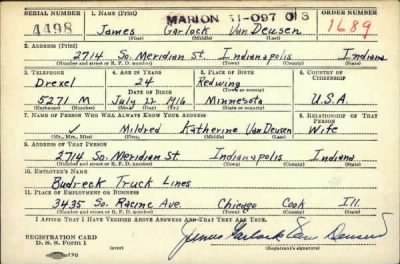 SERIAL NUMBER 1. NAME (Print) MARION 31-097 ORDER NUMBER
4498 James Garlock VanDeusen 1689
(First) (Middle) (Last)
2. ADDRESS (Print)
2714 So. Meridian St. Indianapolis Indiana
(Number and street or R. F. D. number) (Town) (County) (State)
3. TELEPHONE 4. AGE IN YEARS 5. PLACE OF BIRTH 6. COUNTRY OF CITIZENSHIP
Drexel 24 Redwing
(Town or county)
DATE OF BIRTH
5271 M July 22 1916 Minnesota U.S.A.
(Exchange) (Number) (Mo.) (Day) (Yr.) (State or country)
7. NAME OF PERSON WHO WILL ALWAYS KNOW YOUR ADDRESS 8. RELATIONSHIP OF THAT PERSON
Mildred Katherine VanDeusen Wife
(Mr., Mrs., Miss) (First) (Middle) (Last)
9. ADDRESS OF THAT PERSON
2714 So. Meridian St. Indianapolis Indiana
(Number and street or R. F. D. number) (Town) (County) (State)
10. EMPLOYER'S NAME
Budreck Truck Lines
11. PLACE OF EMPLOYMENT OR BUSINESS
3435 So. Racine Ave. Chicago Cook Ill.
(Number and street or R. F. D. number) (Town) (County) (State)
I AFFIRM THAT I HAVE VERIFIED ABOVE ANSWERS AND THAT THEY ARE TRUE.
REGISTRATION CARD
D. S. S. Form 1 (over) James Garlock Van Deusen
(Registrant's signature)